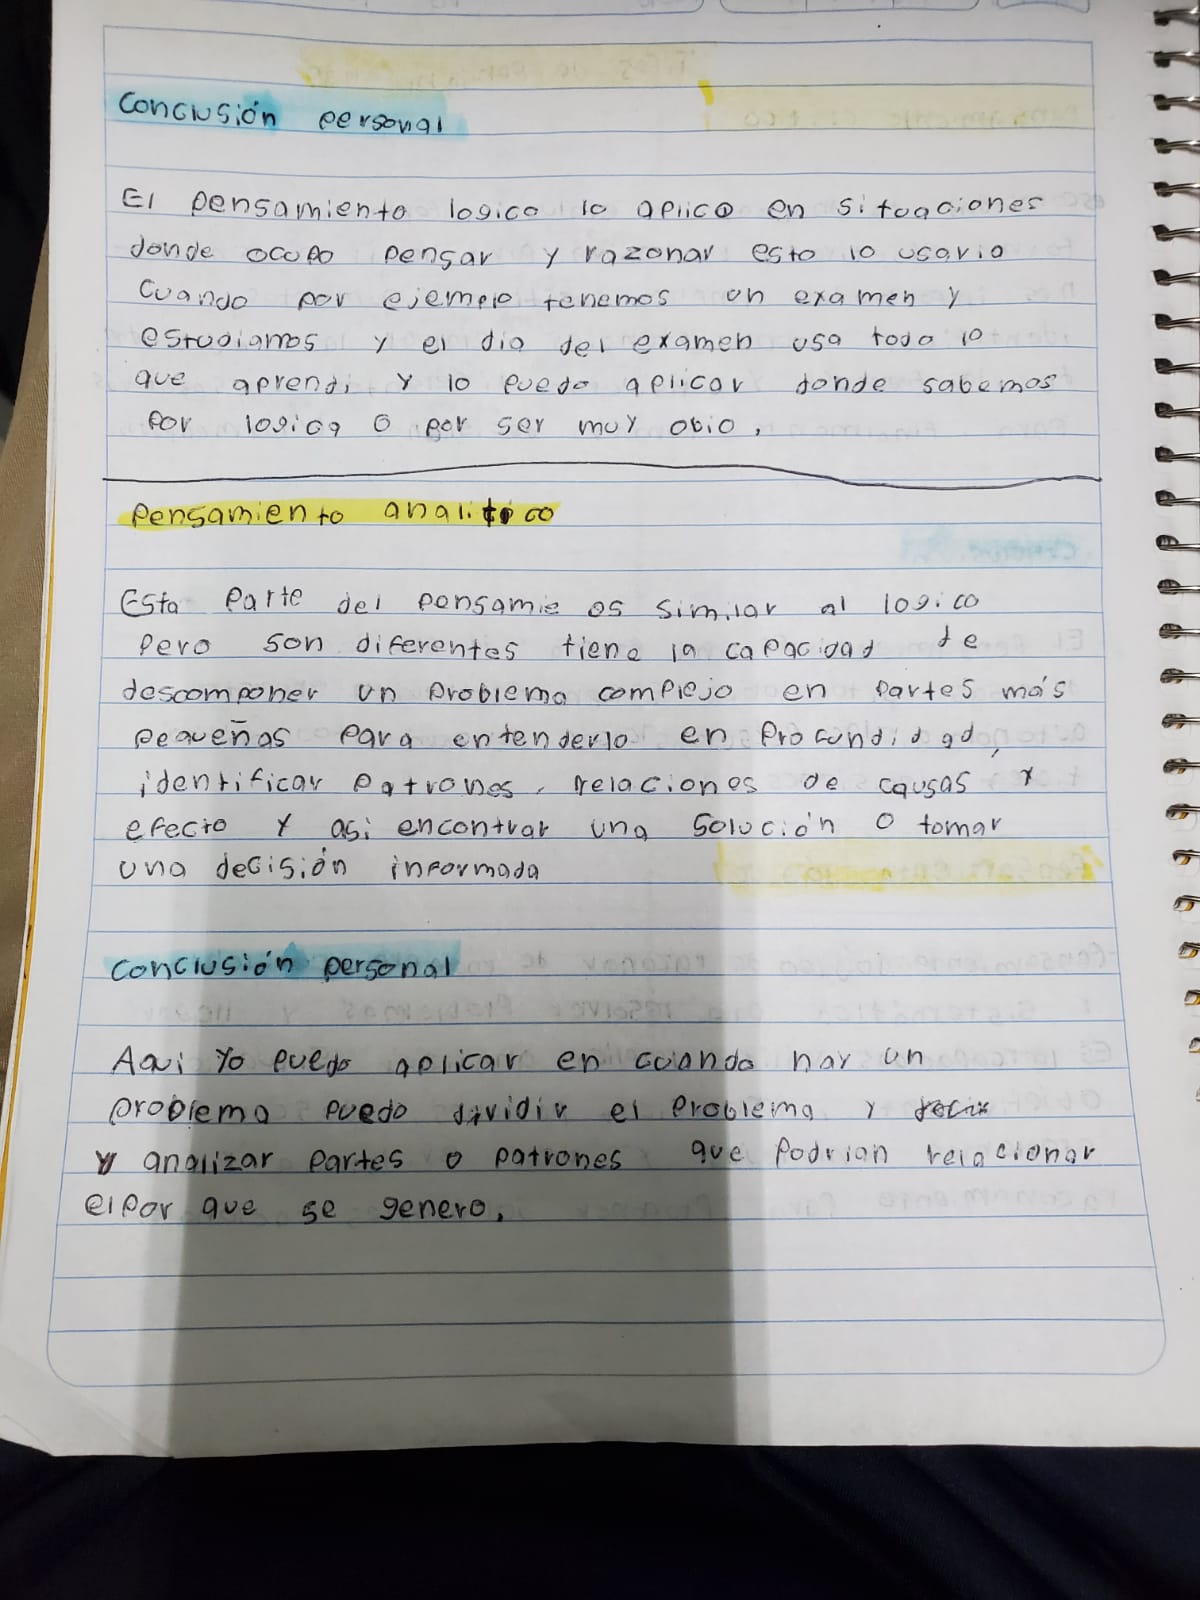 Conclusión personal
El pensamiento logico lo aplico en situaciones
donde ocupo pensar y razonar esto lo usario
cuando por ejemplo tenemos un examen y
estudiamos y el dia del examen usa todo lo
que aprendi y lo puedo aplicar donde sabemos
por logica o por ser muy obio.
Pensamiento analitico
Esta parte del pensamie es similar al logico
pero son diferentes tiene la capacidad de
descomponer un problema complejo en partes más
pequeñas para entenderlo en profundidad,
identificar patrones, relaciones de causas y
efecto y asi encontrar una solución o tomar
una decisión informada
Conclusión personal
Aqui yo puedo aplicar en cuando hay un
problema puedo dividir el problema y
y analizar partes o patrones que podrian relacionar
el por que se genero.